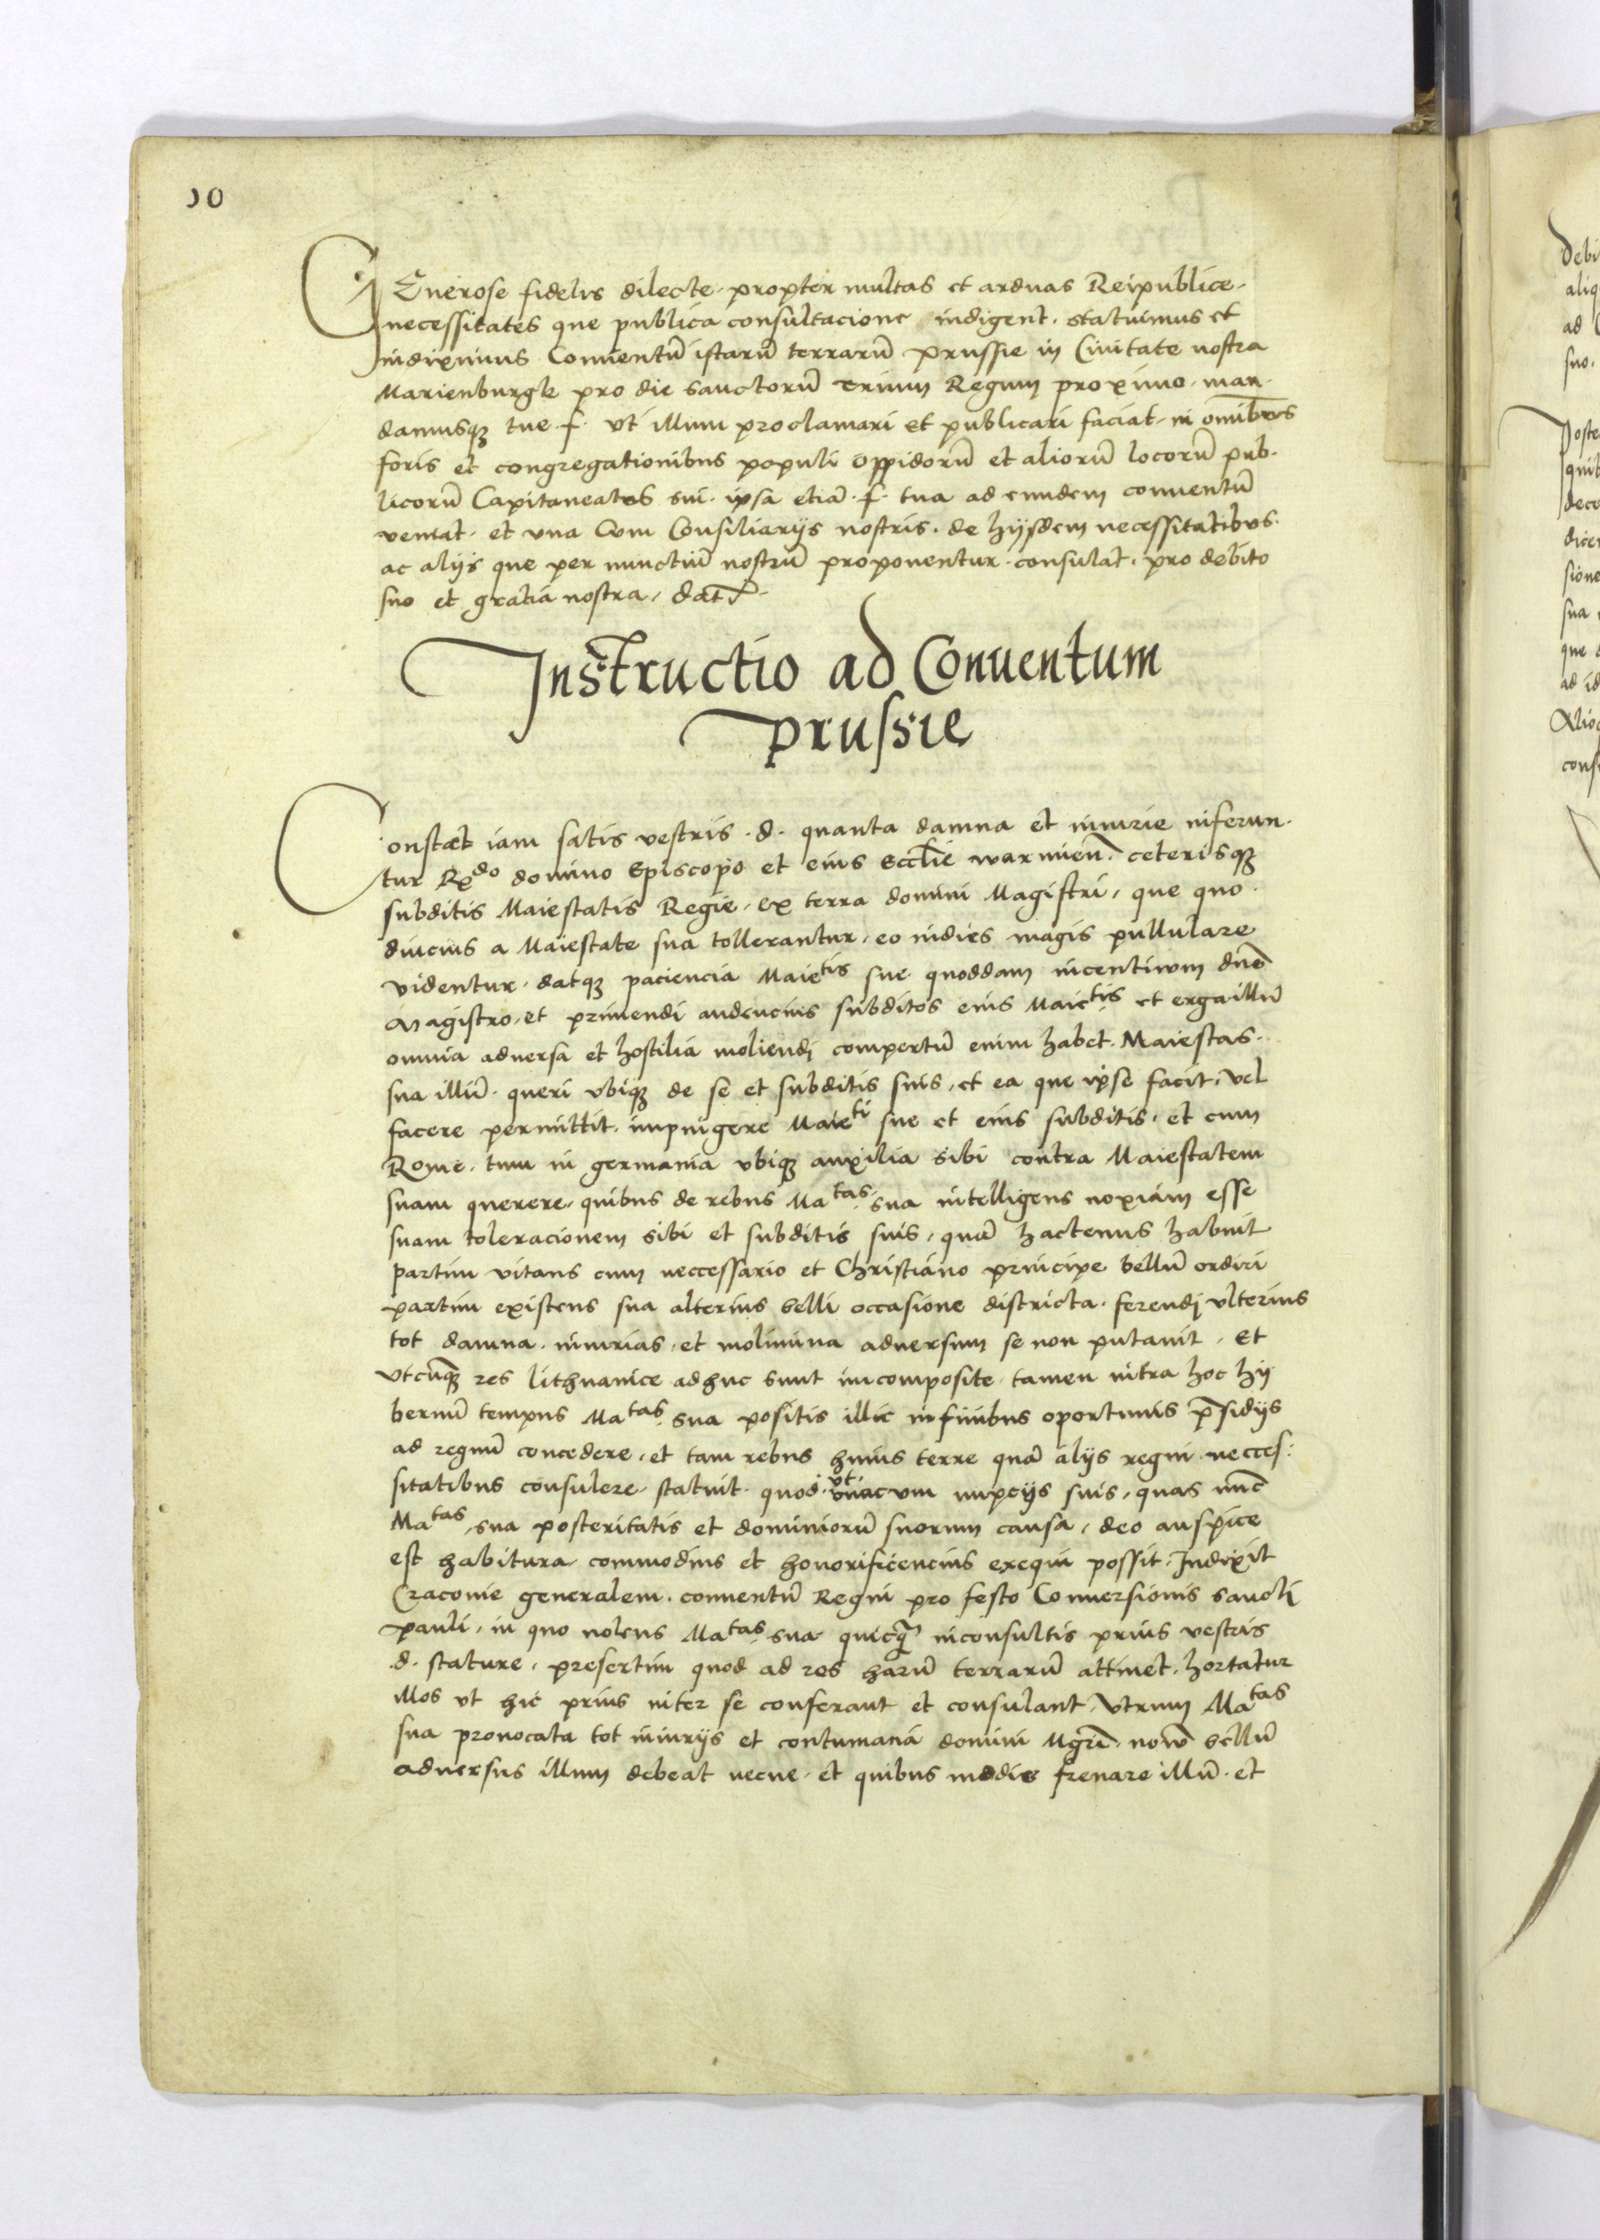 10
GEnerose fidelis dilecte. propter multas et arduas Reipublice.
necessitates que publica consultacione indigent. statuimus et
indiximus Conuentū istarū terrarū prussie in Ciuitate nostra
Marienburgk pro die sanctorū trium Regum proximo. man-
damusq3 tue .f. vt illum proclamari et publicari faciat. in om̄ibus
foris et congregationibus populi oppidorū et aliorū locorū pub-
licorū Capitaneatus sui. ipsa etiā .f. tua ad eundem conuentū
veniat. et vna Cum Consiliarijs nostris. de hijsdem necessitatibus.
ac alijs que per nunctiū nostrū proponentur. consulat. pro debito
suo et gratia nostra, dat̄
Instructio ad Conuentum
prussie
Constat iam satis vestris .d. quanta damna et iniurie inferun-
tur Rx̄do domino Episcopo et eius Eccl̄ie warmieñ. ceterisq3
subditis Maiestatis Regie, ex terra domini Magistri, que quo
diucius a Maiestate sua tollerantur, eo indies magis pullulare
videntur. datq3 paciencia Maietis sue quoddam incentiuum dno
Magistro, et premendi audencius subditos eius Maietis et erga illū
omnia aduersa et hostilia moliendi compertū enim habet. Maiestas.
sua illū. queri vbiq3 de se et subditis suis, et ea que ipse facit, vel
facere permittit. impingere Maieti sue et eius subditis, et cum
Rome, tum in germania vbiq3 auxilia sibi contra Maiestatem
suam querere, quibus de rebus Matas. sua intelligens noxiam esse
suam toleracionem sibi et subditis suis, quā hactenus habuit
partim vitans cum neccessario et Christiano principe bellū ordiri
partim existens sua alterius belli occasione districta. ferendi vlterius
tot damna. iniurias, et molimina aduersum se non putauit, Et
vtcūq3 res lithuanice adhuc sunt incomposite. tamen intra hoc hij
bernū tempus Matas. sua positis illic in finibus oportunis p̄sidijs
ad regnū concedere, et tam rebus huius terre quā alijs regni necces:
sitatibus consulere. statuit. quod. vt vnacum nupcijs suis, quas nūc
Matas. sua posteritatis et dominiorū suorum causa, deo auspice
est habitura commodius et honorificencius exequi possit. Indixit
Cracouie generalem. conuentū Regni pro festo Conuersionis sancti
pauli, in quo nolens Matas. sua quicq̄ inconsultis prius vestris
.d. stature, presertim quod ad res harū terrarū attinet. hortatur
illos vt hic prius inter se conferant et consulant, Vtrum Matas
sua prouocata tot iniurijs et contumacia domini Mgrī. nouū bellū
aduersus illum debeat necne. et quibus modis frenare illū. et